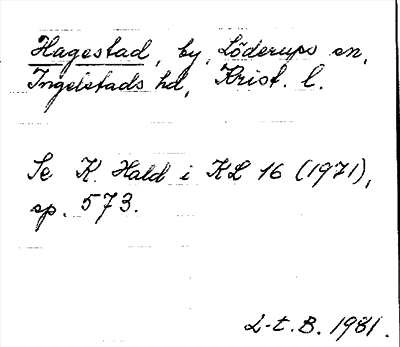 Hagestad, by, Löderups sn,
Ingelstads hd, Krist. l.
Se K. Hald i KL 16 (1971),
sp. 573.
L-t.B. 1981.